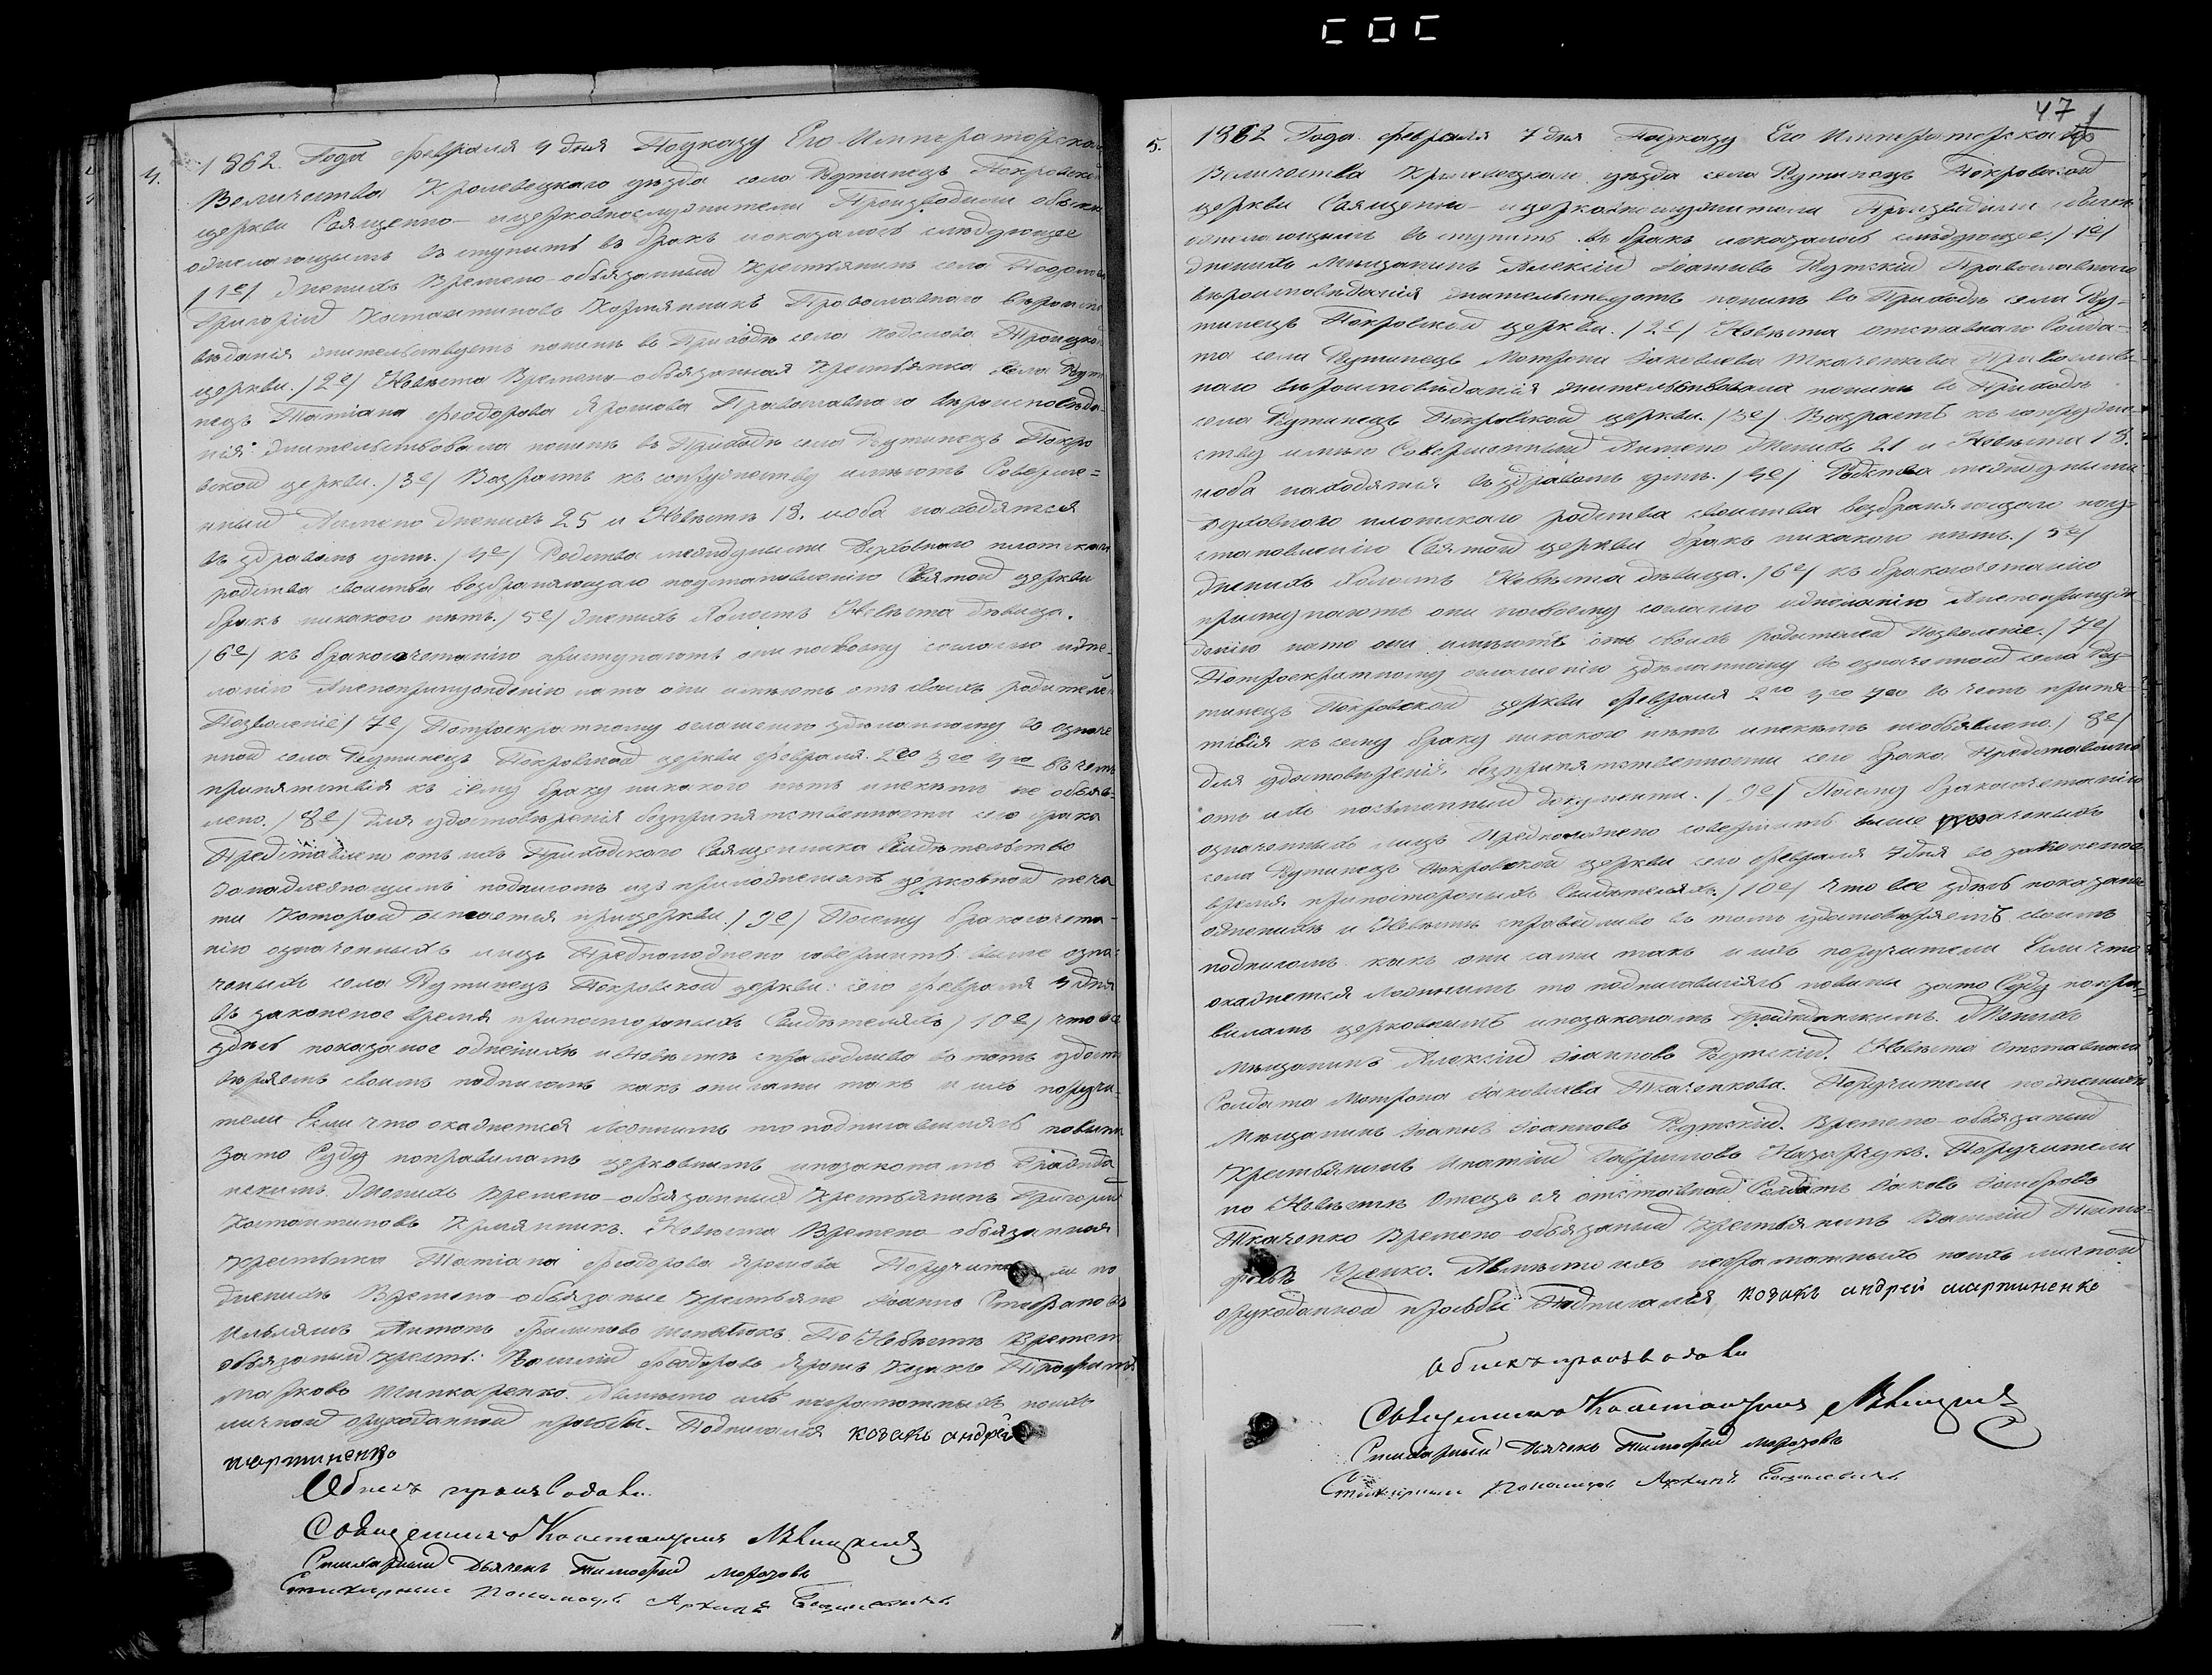 4.
1862. Года февраля 4 дня Поуказу Его Императорска
Величества Кролевецкаго уѣзда села Рутинецъ Покровской
церкви Священно- ицерковнослужители Производили обыск
ожелающимъ вступить въ бракъ показалось слѣдующее
/1е/ Женихъ Времено-обязанный Крестьянинъ села
Григорій Костантиновъ Православнаго вѣроиспо
вѣданія жительствуетъ нонинѣ въ Приходѣ села
церкви. /2е/ Невѣста Времено-обязанная Крестьянка села Рути
нецъ Татіана Феодорова Ярошова Православнаго вѣроисповѣда
нія жительствовала нонинѣ въ Приходѣ села Рутинецъ Покро
вской церкви. /3е/ Возрастъ къ сопружеству имѣютъ Соверше=
нный Аимено Женихъ 25 и Невѣста 18. иоба находятся
въ здравомъ умѣ. /4е/ Родства междуними Духовнаго плотскаго
родства свойства возбраняющаго поустановленію Святой церкви
бракъ никакого нѣтъ. /5е/ Женихъ Холостъ Невѣста дѣвица.
/6е/ къ бракосочетанію приступаютъ они посвоему согласію ижe-
ланію Анепопринужденію нато они имѣютъ отъ своихъ родителей
Позволеніе /7е/ Потроекратному оглашенію здѣланному во означе
нной села Рутинецъ Покровской церкви февраля. 2го 3го 4го въ чемъ
припятствія къ сему браку никакого нѣтъ инекѣмъ не объяв-
лено. /8е/ Для удостовѣренія безприпятственности сего брака
Представлено отъ ихъ Приходскаго Священника Свидѣтельство
Занадлежащимъ подписомъ изъ приложеніемъ церковной печа
ти Которой остается прицеркви. /9е/ Посему бракосочета-
нію означенныхъ лицъ Предположено совершить выше озна=
ченыхъ села Рутинецъ Покровской церкви: сего февраля 4 дня
въ законеное время припостороныхъ Свидѣтеляхъ /10е/ что все
здѣсь показаное оженихѣ иНевѣстѣ справедливо въ томъ удосто
вѣряемъ своимъ подписомъ какъ они сами такъ и ихъ поручи-
тели Если что окажется Ложнимъ то подписавшіясъ повинн
зато Суду поправиламъ церковнимъ ипозаконамъ Гражда
нскимъ. Женихъ Времено-обязанный Крестьянинъ Григорій
Костантиновъ. Невѣста Времено-обязанная
крестьянка Татіана Феодорова Ярошова Поручители по
Женихѣ Времено-обязаные крестьяне Іоаннъ Стефановъ
Антонъ Филиповъ. По Невѣстѣ Времен
обязаный крестъ: Василій Феодоровъ Ярошъ Козакъ Трофимъ
Марковъ Шинкаренко. Авмѣсто ихъ неграмотныхъ поихъ
личной орукоданной прозьбы. Подписался козакъ андрей
мартиненко
Обыскъ производили
Священникъ Константинъ Лѣвицкій
Стихарный Дьячекъ Тимофей Морозовъ
Стихарный Пономарь Архипъ
47
5.
1862 Года. февраля 7 дня Поуказу Его Императорскаго
Величества Кролевецкаго уѣзда села Рутинецъ Покровской
церкви Священно- ицерковнослужители Производили обыскъ
ожелающимъ вступить въ бракъ показалось слѣдующее. /1е/
Женихъ Мѣщанинъ Алексій Іоановъ Рутскій Православнаго
вѣроисповѣданія жительствуетъ нонинѣ въ Приходѣ села Ру-
тинецъ Покровской церкви. /2е/ Невѣста отставнаго Солда-
та села Рутинецъ Мотрона Іаковлева Ткаченкова Православ-
наго вѣроисповѣданія жительствовала нонинѣ въ Приходѣ
села Рутинецъ Покровской церкви. /3е/ Возрастъ къ сопруже-
ству имѣю Совершенный Аимено Женихъ 21 и Невѣста 18.
иоба находятся въ здравомъ умѣ. /4е/ Родства междуними
Духовнаго плотскаго родства свойства возбраняющаго поу-
становленію Святой церкви бракъ никакого нѣтъ. /5е/
Женихъ Холостъ Невѣста дѣвица. /6е/ къ бракосочетанію
приступаютъ они посвоему согласію ижеланію Анепопринуж-
денію нато они имѣютъ отъ своихъ родителей Позволеніе. /7е/
Потроекратному оглашенію здѣланному во означенной села Ру-
тинецъ Покровской церкви февраля 2го 3го 4го въ чемъ припя-
тствія къ сему браку никакого нѣтъ инекѣмъ необявлено. /8е/
Для удостовѣренія безприпятственности сего брака Представлено
отъ ихъ письменный документы. /9е/ Посему бракосочетанію
означенныхъ лицъ Предположено совершить выше означеныхъ
села Рутинецъ Покровской церкви сего февраля 7 дня во законеное
время припостороныхъ Свидѣтеляхъ. /10е/ Что все здѣсь показаное
оженихѣ и Невѣстѣ справедливо въ томъ удостовѣряемъ своимъ
подписомъ какъ они сами такъ и ихъ поручители Если что
окажется Ложнимъ то подписавшіясъ повины зато Суду попра-
виламъ церковнимъ ипозаконамъ Гражданскимъ. Женихъ
Мѣщанинъ Алексій Іоанновъ Рутскій. Невѣста Отставнаго
Солдата Мотрона Іаковлева Ткаченкова. Поручители поженихѣ
Мѣщанинъ Іоанъ Іоанновъ Рутскій. Времено-обязаный
Крестьянинъ Игнатій Гавриловъ Назарчукъ. Поручители
по Невѣстѣ Отецъ ея отставной Солдатъ Іаковъ
Ткаченко Времено-обязаный крестьянинъ Василій Тимо-
феевъ. Авмѣсто ихъ неграмотныхъ поихъ личной
орукоданной прозьбы Подписался, козакъ андрей мартиненко
обыскъ производили
Священникъ Константинъ Лѣвицкій
Стихарный Дячекъ Тимофей Морозовъ
Стихарный Пономарь Архипъ